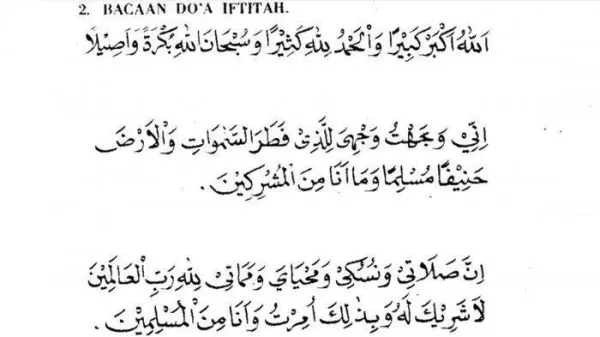 2. BACAAN DO'A IFTITAH.
اَللهُ اَكْبَرُ كَبِيْرًا وَالْحَمْدُ لِلهِ كَثِيْرًا وَسُبْحَانَ اللهِ بُكْرَةً وَاَصِيْلًا
اِنِّيْ وَجَّهْتُ وَجْهِيَ لِلَّذِيْ فَطَرَ السَّمٰوَاتِ وَالْاَرْضَ
حَنِيْفًا مُسْلِمًا وَمَا اَنَا مِنَ الْمُشْرِكِيْنَ .
اِنَّ صَلَاتِيْ وَنُسُكِيْ وَمَحْيَايَ وَمَمَاتِيْ لِلهِ رَبِّ الْعَالَمِيْنَ
لَا شَرِيْكَ لَهُ وَبِذٰلِكَ اُمِرْتُ وَاَنَا مِنَ الْمُسْلِمِيْنَ .